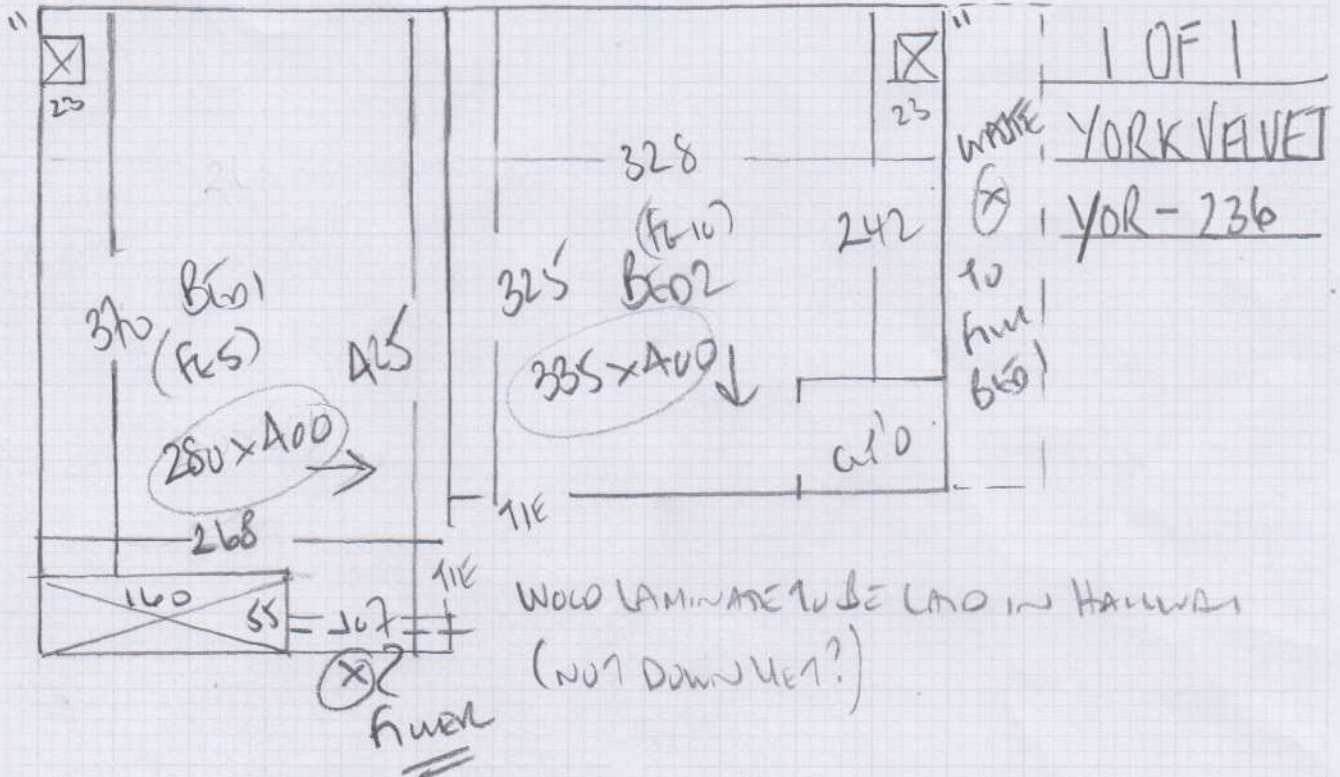 23
370
BED1
425
280 x 400
268
160
55
107
FILLER
328
325
BED2
335 x 400
23
242
TIE
TIE
WASTE
TO
BED1
1 OF 1
YORK VELVET
YOR - 236
WOOD LAMINATE TO BE LAID IN HALLWAY
(NOT DOWN YET?)